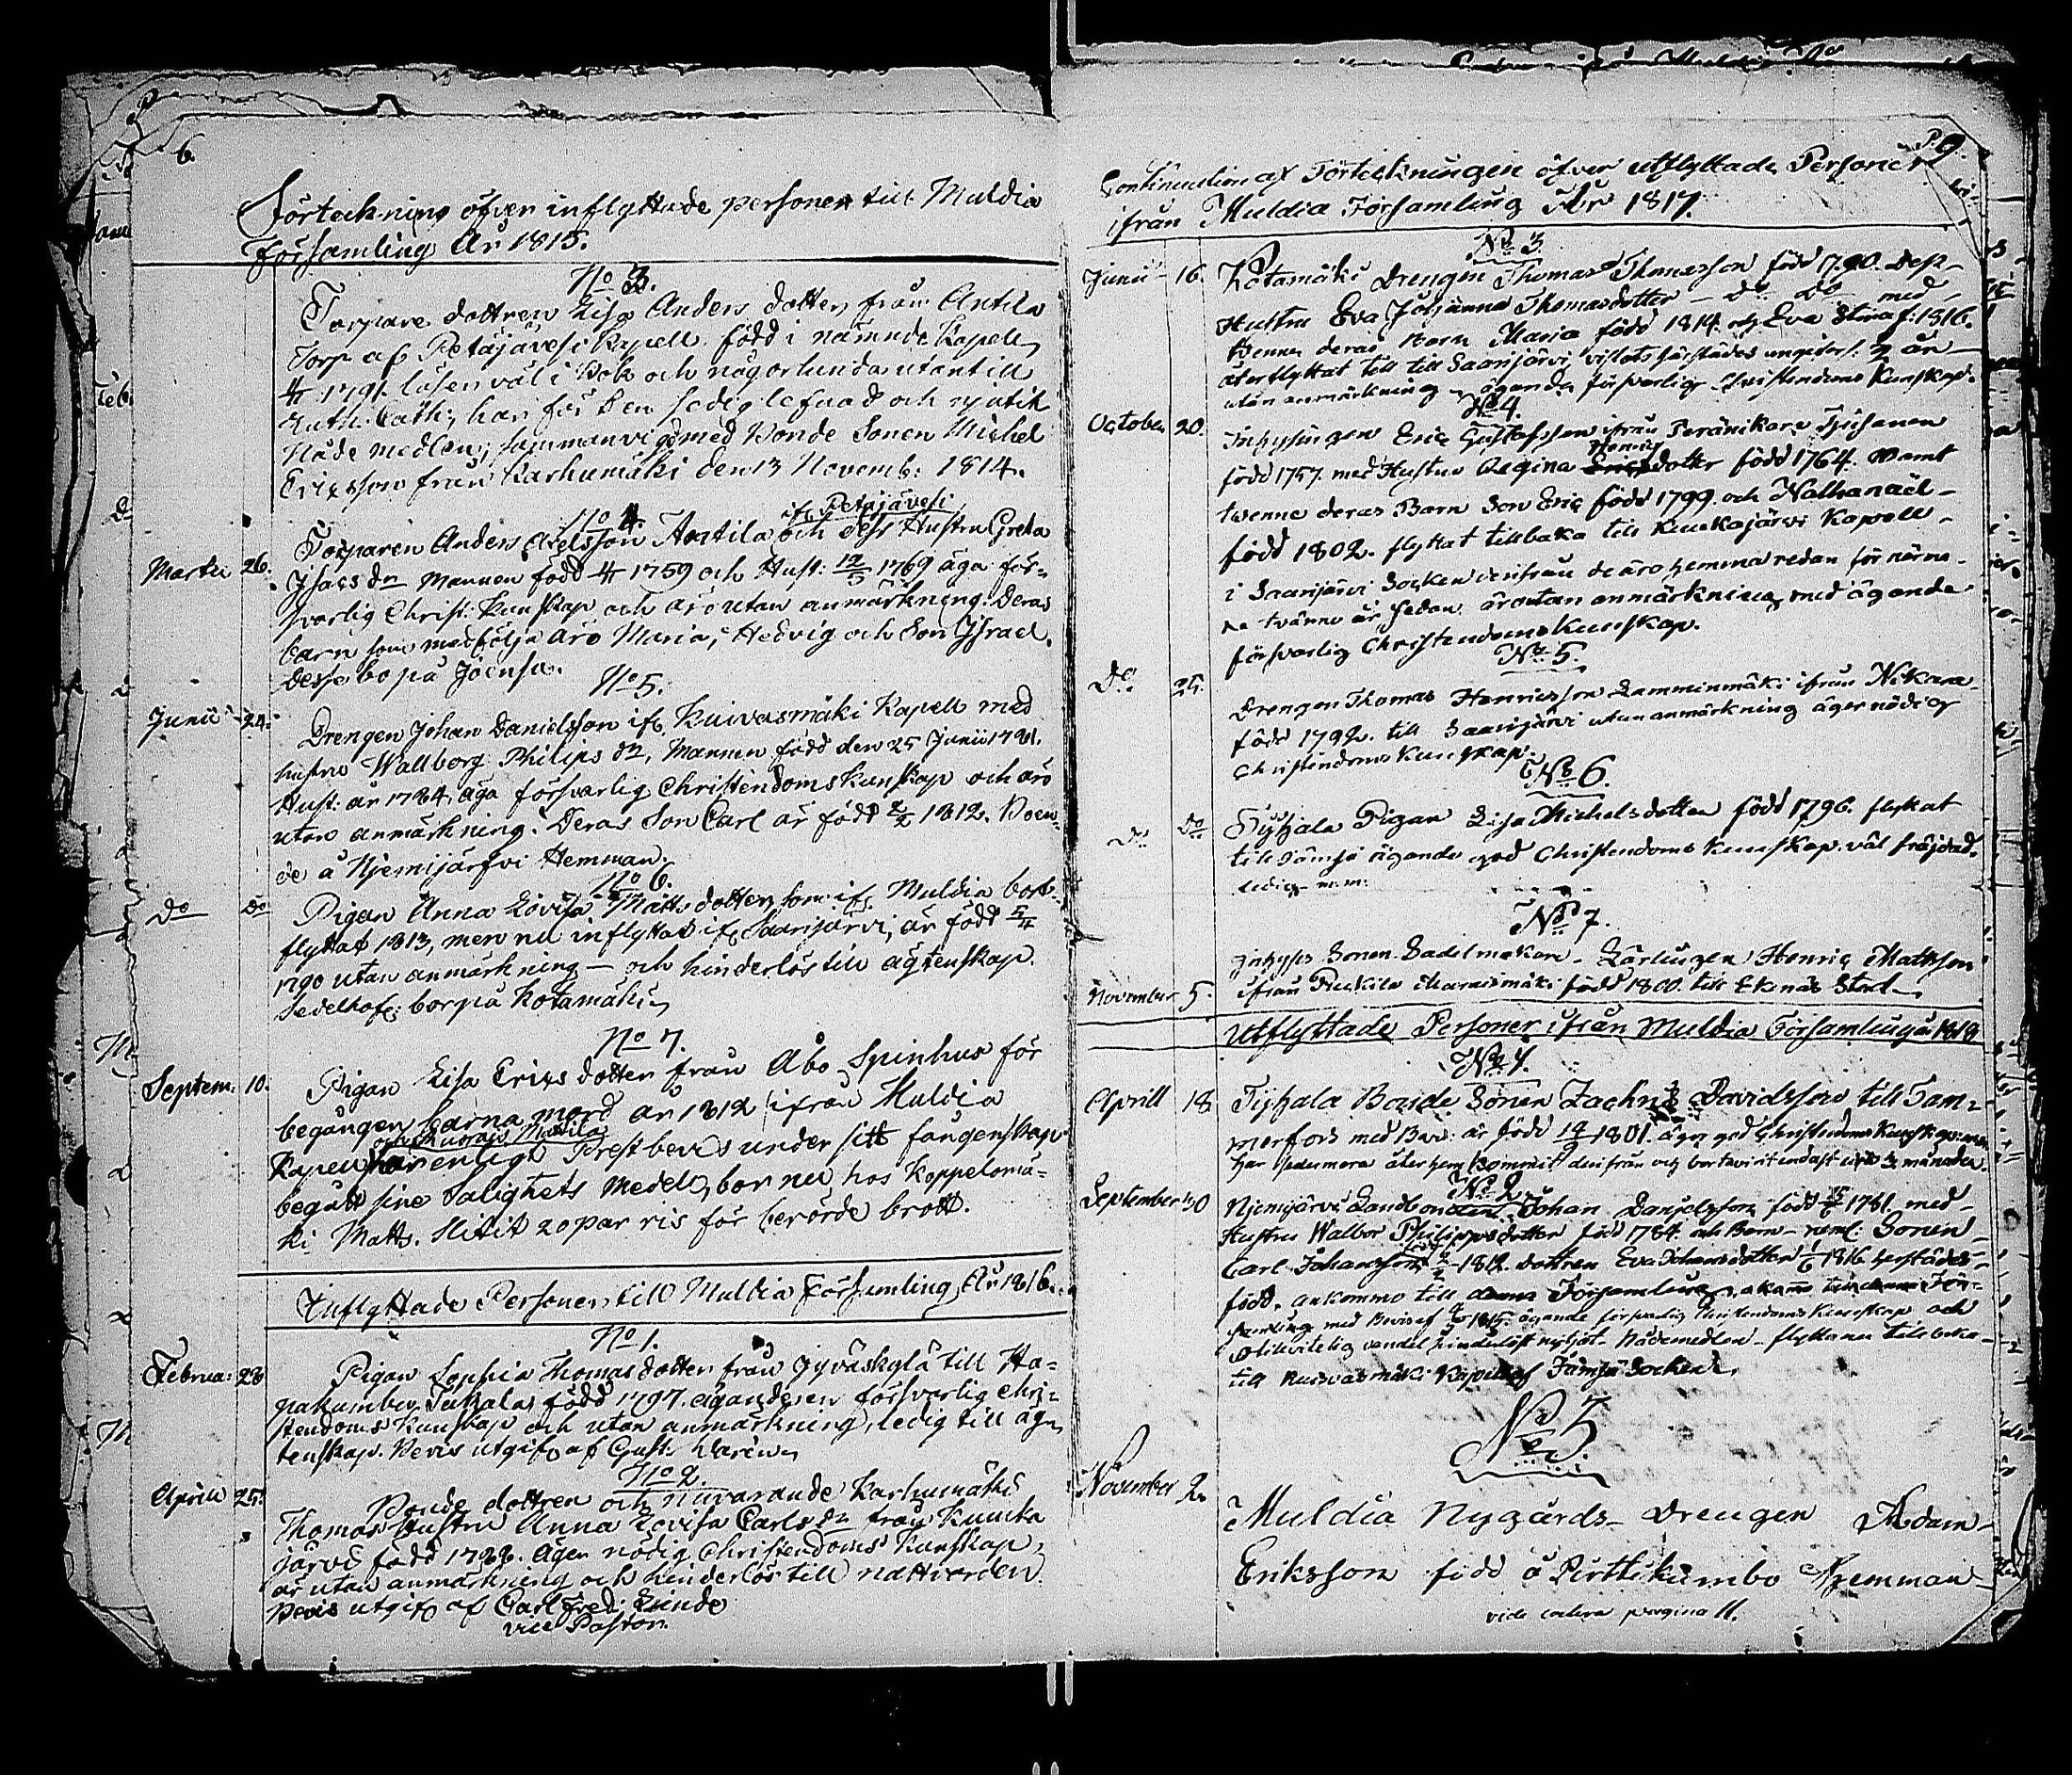 6.
Förteckning öfver inflyttade personer till Muldia
församling År 1815.
No 3.
Torpare dottren Lisa Anders dotter från Antila
Torp af Petäjävesi Kapell född i nämnde Kapell
1791. läser väl i Bok och någorlunda utantill
Luth: Cath: har fört en sedig lefnad och njutit
Nåde medlen; sammanvigd med Bonde Sonen Michel
Ericsson från Karhumäki den 13 Novemb: 1814.
No 4.
if. Petäjävesi
Martii 26. Torparen Anders Axelsson Antila och dess Hustru Greta
Isacs dr Mannen född 1759 och Hust: 1769 äga för-
svarlig Christ: kunskap och äro utan anmärkning. Deras
barn som medfölja äro Maria, Hedvig och Son Israel.
Desse bo på Joensu.
No 5.
Junii 24. Drengen Johan Danielsson if. Kuivasmäki Kapell med
hustru Wallborg Philips dr, Mannen född den 25 Junii 1781.
Hust: år 1784, äga försvarlig Christendoms kunskap och äro
utan anmärkning. Deras Son Carl är född 2/2 1812. Boen-
de å Njemijärfvi Hemman.
No 6.
Do Do Pigan Anna Lovisa Matts dotter, som if. Muldia bort-
flyttat 1813, men nu inflyttat if. Saarijärvi, är född 5/4
1790 utan anmärkning — och hinderlös till ägtenskap.
bor på Kotamäki
No 7.
Septem: 10. Pigan Lisa Erics dotter från Åbo Spinhus för
begången barna mord år 1812 ifrån Muldia
Kapell har enligt Prest bevis under sitt fångenskap
begått sine Salighets medel, bor nu hos Koppelomä-
ki Matts. Slitit 20 par ris för berörde brott.
Inflyttade Personer till Muldia Församling År 1816.
No 1.
Februa: 28 Pigan Sophia Thomas dotter från Jyväskylä till Ha-
pakumbu född 1797. ägande en försvarlig Chri-
stendoms kunskap och utan anmärkning, ledig till äg-
tenskap. Bevis utgif. af Gust:
No 2.
Aprill 25. Bonde dottren och nuvarande Karhumäki
Thomas Hustru Anna Lovisa Carls dr från Kuuska
järvi född 1788. äger nödig Christendoms kunskap,
är utan anmärkning och hinderlös till nattvarden
Bevis utgif. af Carl Fred: Linde
vice Pastor.
P. 9.
Continuation af Förteckningen öfver utflyttade Personer
ifrån Muldia Församling År 1817.
No 3.
Junii 16. Kotamäki Drengen Thomas Thomasson född 1790. Dess
Hustru Eva Johanna Thomasdotter — Do Do med
tvenne deras Barn Maria född 1814. och Eva Stina f: 1816.
återflyttat till till Saarijärvi vistats härstädes ungefär: 2 år
utan anmärkning ägande försvarlig Christendoms kunskap.
No 4.
October 20. Inhysingen Eric Gustafsson ifrån Peränikara
född 1757. med Hustru Regina Henrics dotter född 1764. samt
tvenne deras Barn Son Eric född 1799. och Nathanaël
född 1802. flyttat tillbaka till Kuuskajärvi Kapell
i Saarijärvi Socken derifrån de äro hemma redan för närma-
re tvänne år sedan äro utan anmärkning med ägande
försvarlig Christendoms kunskap.
No 5.
Do 25. Drengen Thomas Henricsson Lamminmäki ifrån Nikara
född 1792. till Saarijärvi utan anmärkning äger nödig
Christendoms kunskap.
No 6.
Do Do Tyhjala Pigan Lisa Michelsdotter född 1796. flyttat
till Jämsä ägande god Christendoms kunskap. väl fräjdad.
ledig m.m.
No 7.
November 5. Inhyses Sonen Sadelmakare Lärlingen Henric Mattsson
ifrån född 1800. till Ekenäs Stad
Utflyttade Personer ifrån Muldia Församling år 1818
No 1.
Aprill 18 Tyhjala Bonde Sonen Davidsson till Tam-
merfors med Bev: är född 1801. äger god Christendoms kunskap
har sedermera återkommit derifrån och varit endast 3 månader.
No 2.
September 30 Njemijärvi Landbonden Johan Danjelsson född 1781. med
Hustru Walbor Philippsdotter född 1784. och Barn neml: Sonen
Carl Johansson 2/2 1812. dottren Eva Johansdotter 1816 herstädes
född. ankommo till
samling med Bevis af 1815. ägande försvarlig Christendoms kunskap och
vandel hinderlöst nyttjat Nådemedlen flytta nu tillbaka
till Kuivasmäki Kapell af Jämsä Socken.
No 3.
November 2. Muldia Nygårds Drengen Adam
Eriksson född å Pirttikumbo Hemman
vide pagina 11.